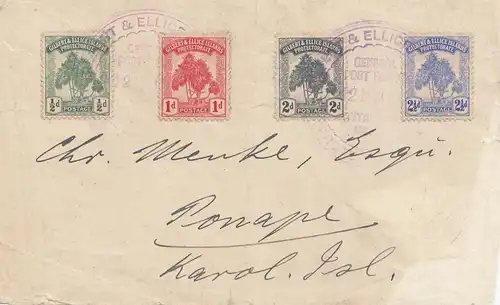 GILBERT & ELLICE ISLANDS
PROTECTORATE
½d POSTAGE ½d
GILBERT & ELLICE ISLANDS
PROTECTORATE
1d POSTAGE 1d
GILBERT & ELLICE ISLANDS
PROTECTORATE
2d POSTAGE 2d
GILBERT & ELLICE ISLANDS
PROTECTORATE
2½d POSTAGE 2½d
& ELLIC
& ELLI
GENERAL
POST
Chr. Menke, Esqu.
Ponape
Karol. Isl.